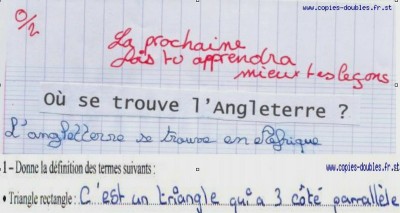 www.copies-doubles.fr.st
0/2
La prochaine
fois tu apprendra
mieux tes leçons
Où se trouve l'Angleterre ?
L'angletterre se trouve en Afrique
1 - Donne la définition des termes suivants :
www.copies-doubles.fr.st
• Triangle rectangle : C'est un triangle qui a 3 côté parrallèle